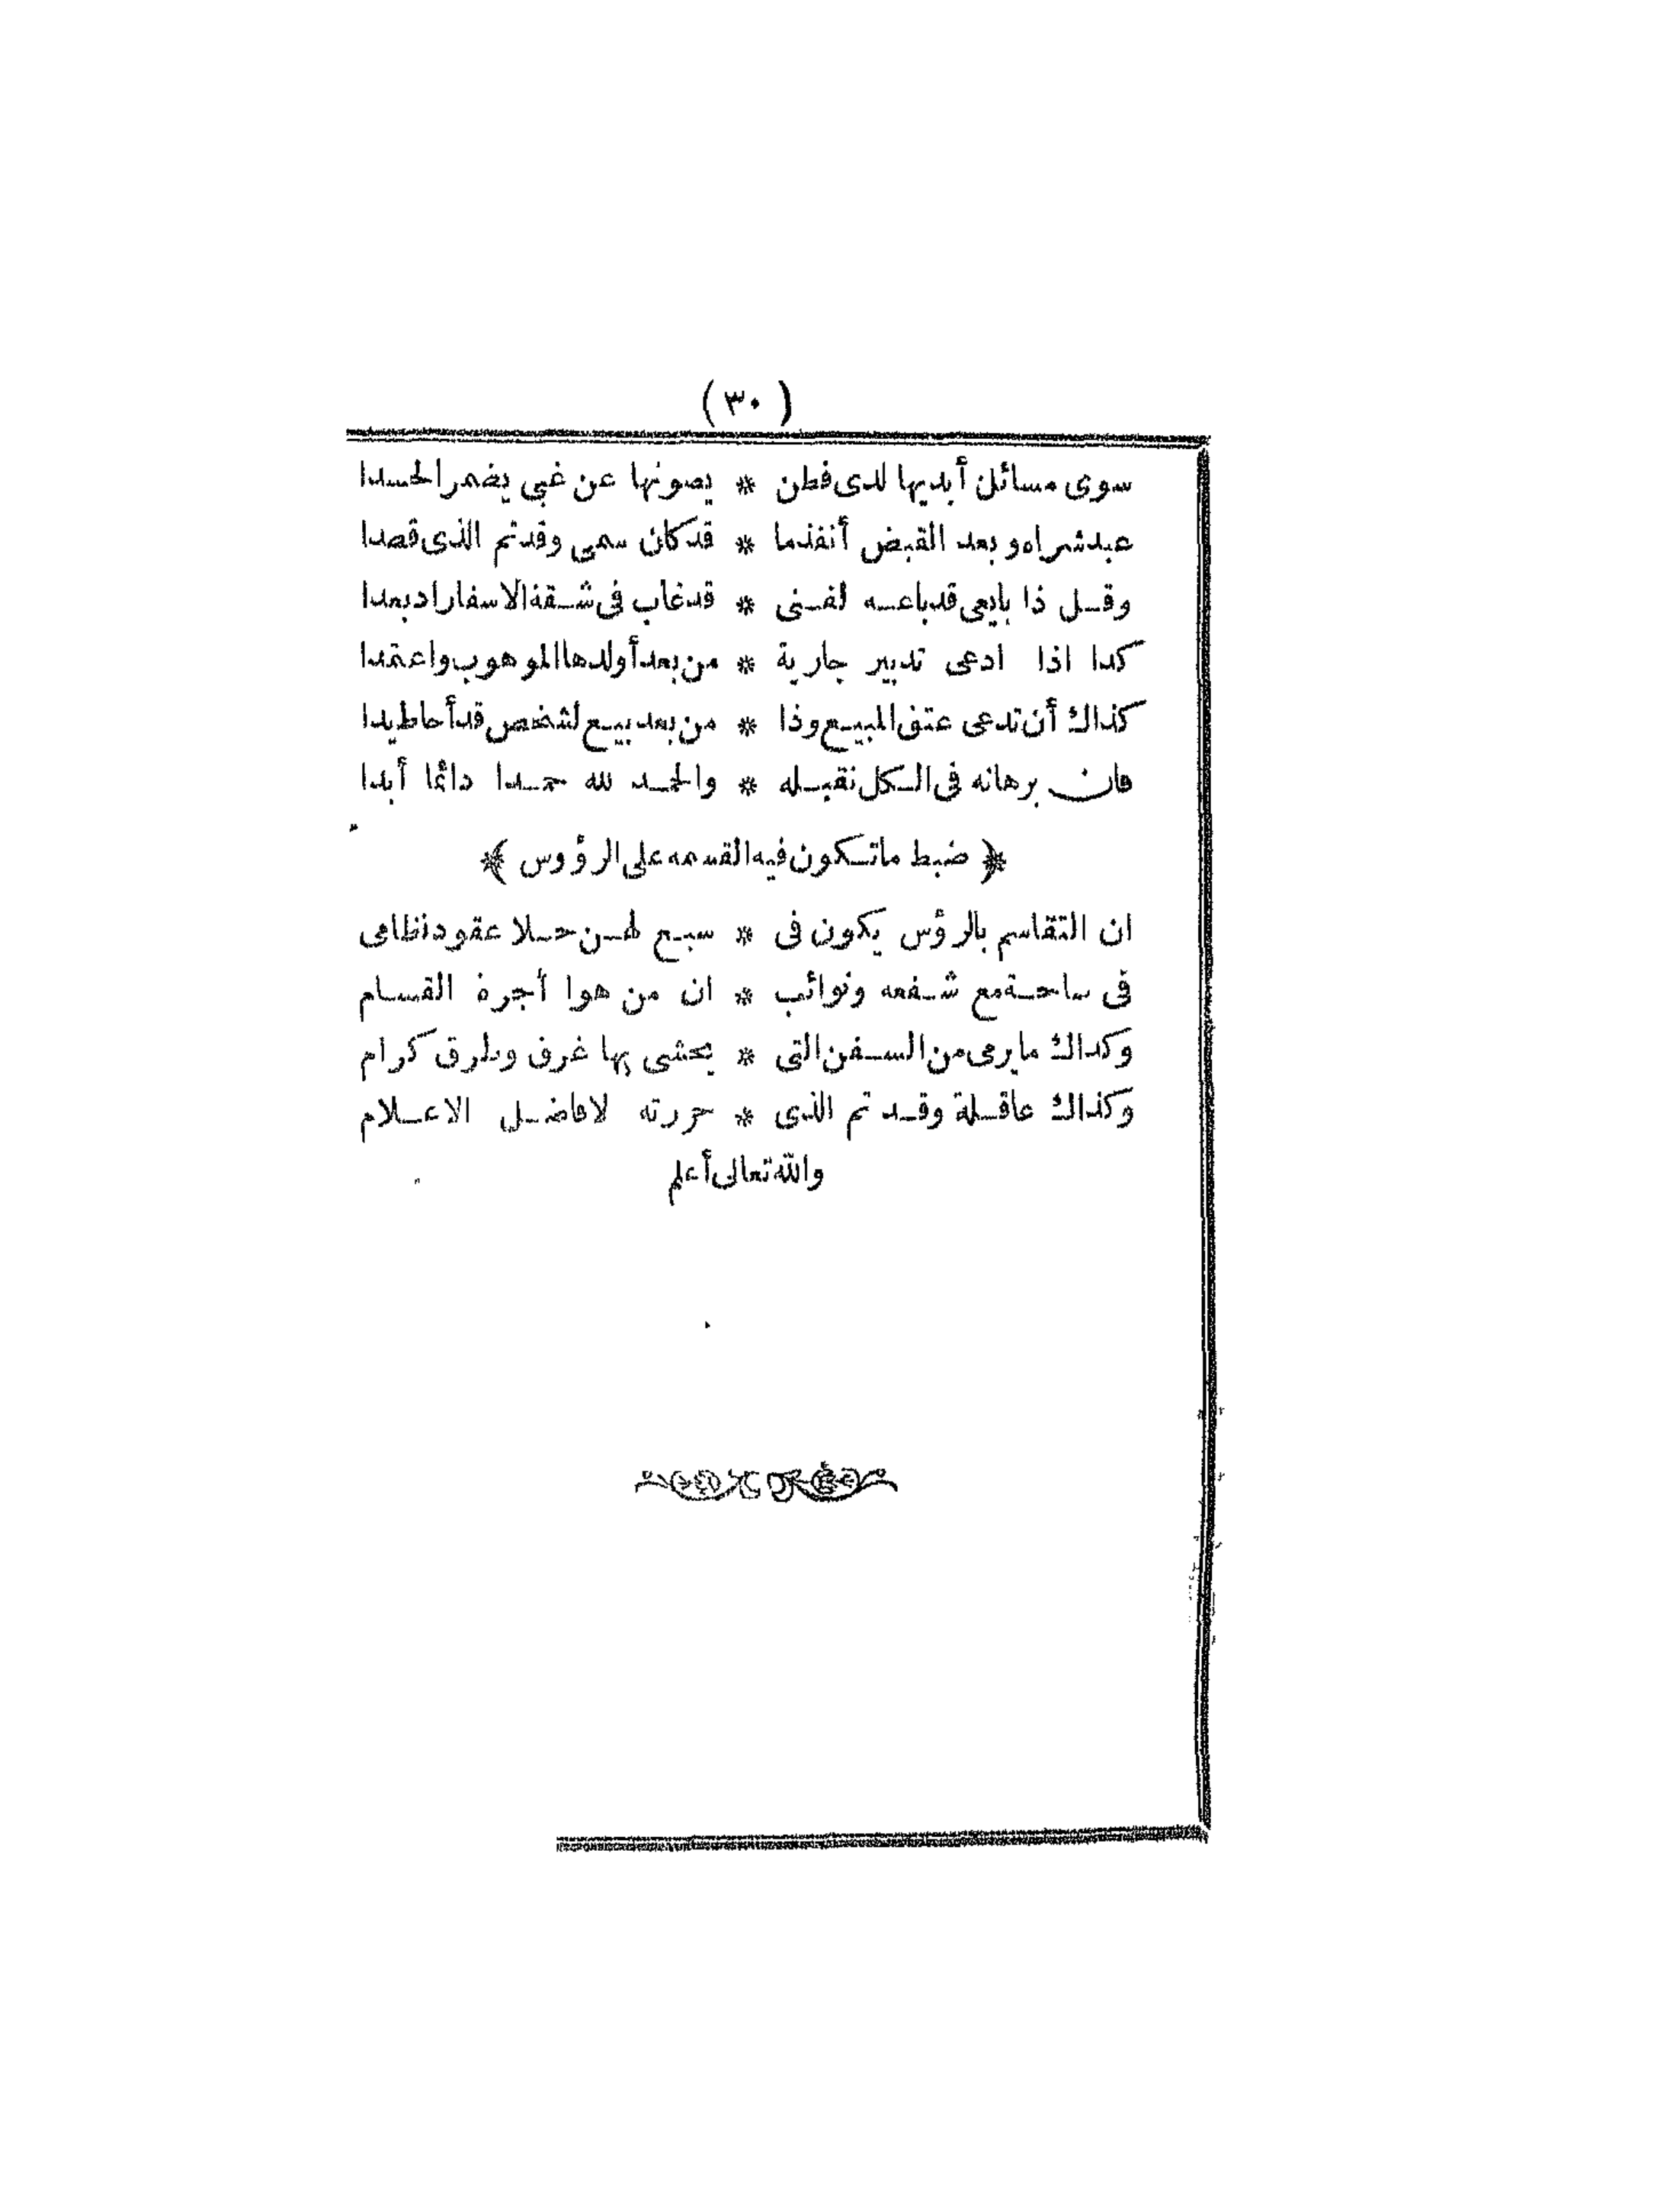 ( ٣٠ )
سوى مسائل أبديها لدى فطن * يصونها عن غبي يضمر الحسدا
عبد شراه وبعد القبض أنفذ ما * قد كان سمى وقد تم الذى قصدا
وقل ذا بايعى قد باعه لفنى * قد غاب فى شقة الاسفار اد بعدا
كدا اذا ادعى تدبير جارية * من بعد أولدها الموهوب واعتمدا
كذاك أن تدعى عتق المبيع وذا * من بعد بيع لشخص قد أحاط يدا
فان برهانه فى الكل نقبله * والحمد لله حمدا دائما أبدا
﴿ ضبط ماتكون فيه القسمه على الرؤوس ﴾
ان التقاسم بالرؤس يكون فى * سبع لهن حلا عقود نظامى
فى ساحة مع شفعه ونوائب * ان من هوا أجرة القسام
وكداك ما يرمى من السفن التى * يخشى بها غرق وطرق كرام
وكذاك عاقلة وقد تم الذى * حررته لافاضل الاعلام
والله تعالى أعلم